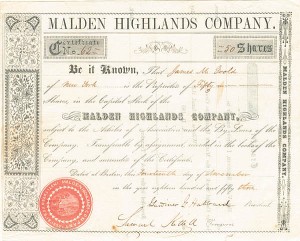 MALDEN HIGHLANDS COMPANY.
Certificate
No. 625
50 Shares
Be it Known, That James M.
of New York is the Proprietor of Fifty
Shares in the Capital Stock of the
MALDEN HIGHLANDS COMPANY,
subject to the Articles of Association and the By-Laws of the
Company. Transferable by on the books of the
Company, and surrender of this Certificate.
Dated at Boston, this day of November
in the year eighteen hundred and fifty
Hubbard President
Samuel Treasurer
MALDEN HIGHLANDS COMPANY.